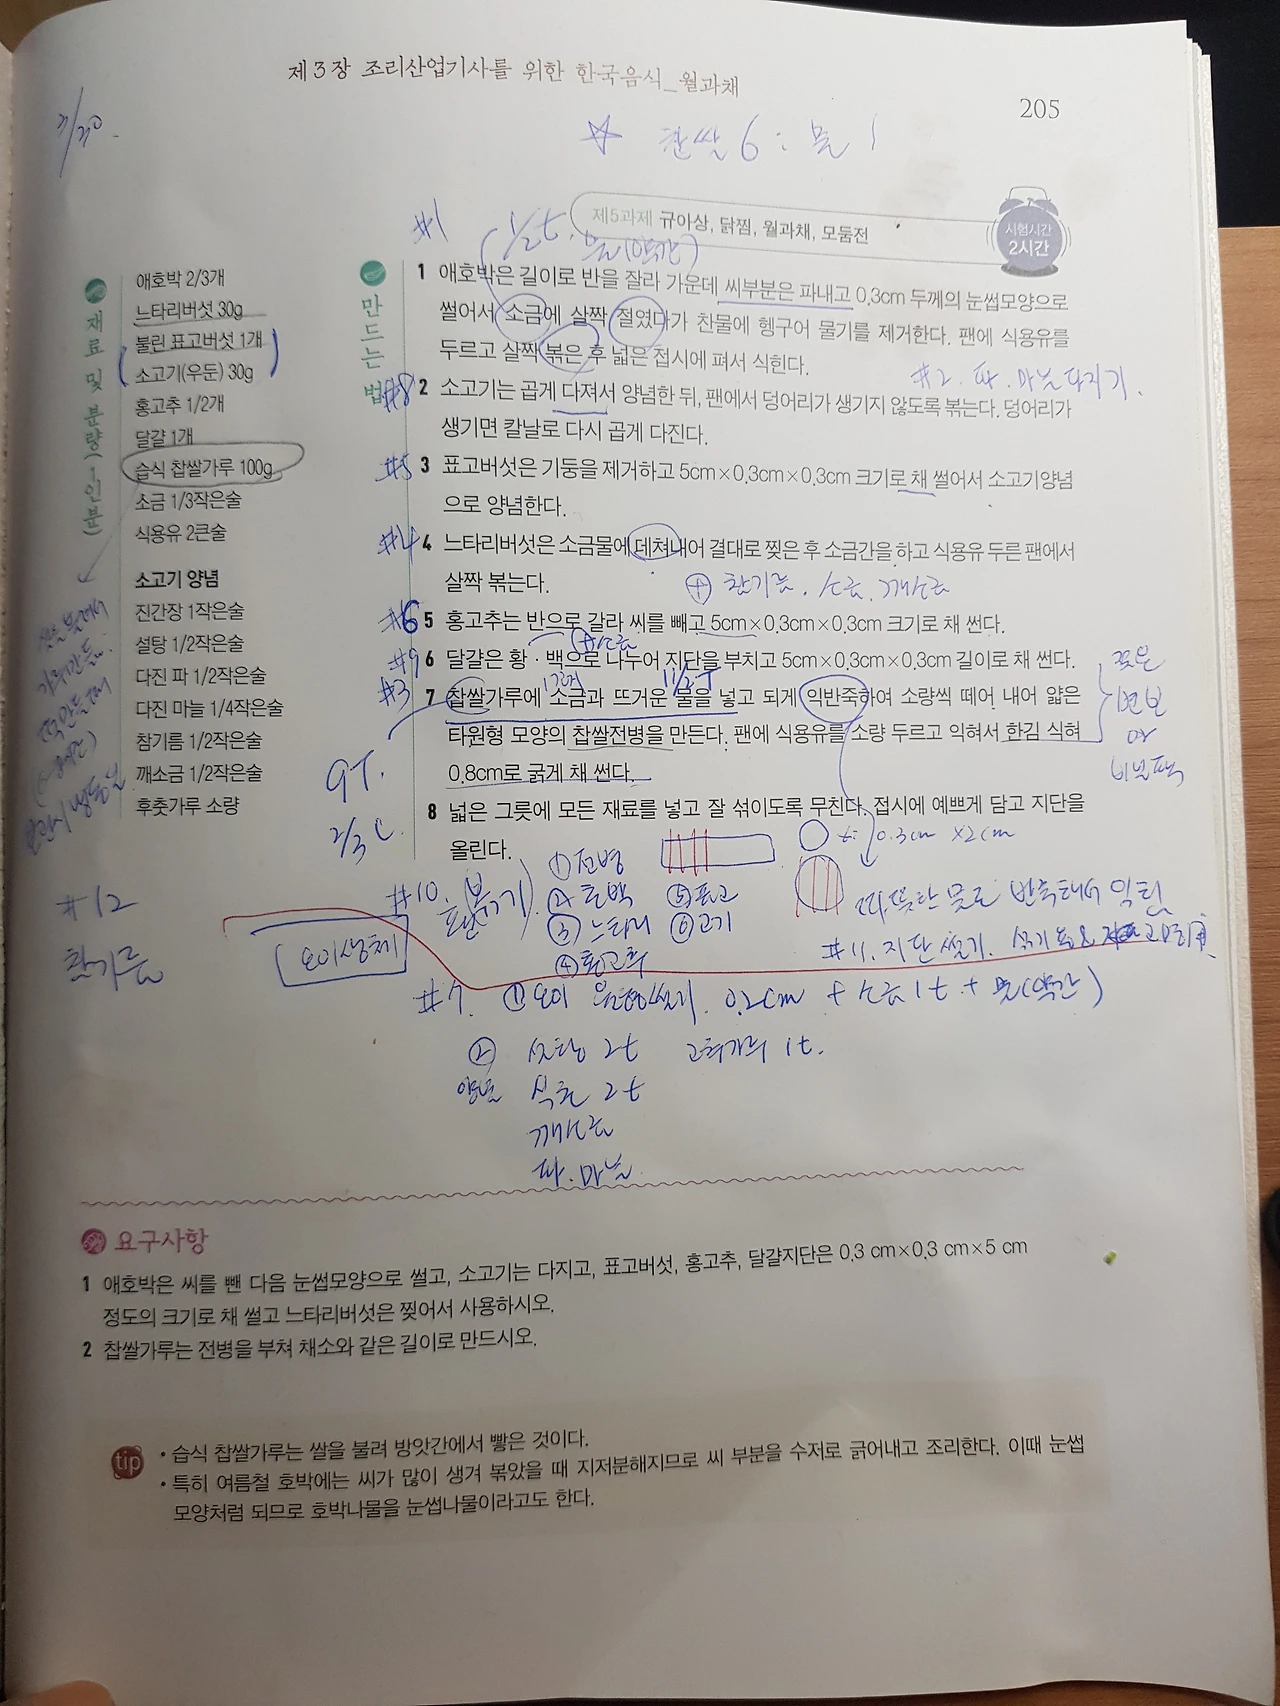 제3장 조리산업기사를 위한 한국음식_월과채
205
2/20.
☆ 찹쌀 6 : 물 1
제5과제 규아상, 닭찜, 월과채, 모둠전
시험시간
2시간
재료 및 분량(1인분)
애호박 2/3개
느타리버섯 30g
불린 표고버섯 1개
소고기(우둔) 30g
홍고추 1/2개
달걀 1개
습식 찹쌀가루 100g
소금 1/3작은술
식용유 2큰술
소고기 양념
진간장 1작은술
설탕 1/2작은술
다진 파 1/2작은술
다진 마늘 1/4작은술
참기름 1/2작은술
깨소금 1/2작은술
후춧가루 소량
만드는 법
#1
1/2t. 물(약간)
1 애호박은 길이로 반을 잘라 가운데 씨부분은 파내고 0.3cm 두께의 눈썹모양으로
썰어서 소금에 살짝 절였다가 찬물에 헹구어 물기를 제거한다. 팬에 식용유를
두르고 살짝 볶은 후 넓은 접시에 펴서 식힌다.
#2. 파. 마늘 다지기.
#8 2 소고기는 곱게 다져서 양념한 뒤, 팬에서 덩어리가 생기지 않도록 볶는다. 덩어리가
생기면 칼날로 다시 곱게 다진다.
#5 3 표고버섯은 기둥을 제거하고 5cm×0.3cm×0.3cm 크기로 채 썰어서 소고기양념
으로 양념한다.
#4 4 느타리버섯은 소금물에 데쳐내어 결대로 찢은 후 소금간을 하고 식용유 두른 팬에서
살짝 볶는다.
⊕ 참기름. 소금. 깨소금
#6 5 홍고추는 반으로 갈라 씨를 빼고 5cm×0.3cm×0.3cm 크기로 채 썬다.
⊕소금
#9 6 달걀은 황·백으로 나누어 지단을 부치고 5cm×0.3cm×0.3cm 길이로 채 썬다.
1 1/2T
#3 7 찹쌀가루에 소금과 뜨거운 물을 넣고 되게 익반죽하여 소량씩 떼어 내어 얇은
타원형 모양의 찹쌀전병을 만든다. 팬에 식용유를 소량 두르고 익혀서 한김 식혀
0.8cm로 굵게 채 썬다.
9T.
2/3C
8 넓은 그릇에 모든 재료를 넣고 잘 섞이도록 무친다. 접시에 예쁘게 담고 지단을
올린다.
t: 0.3cm ×2cm
따뜻한 물로 반죽해서 익힘
#10. 볶기
① 전병
② 호박
③ 느타리
④ 홍고추
⑤ 표고
⑥ 고기
#11. 지단 썰기.
#12
참기름
오이생채
#7 ① 오이 원형썰기. 0.2cm + 소금 1t + 물(약간)
② 설탕 2t 고춧가루 1t.
양념 식초 2t
깨소금
파. 마늘.
요구사항
1 애호박은 씨를 뺀 다음 눈썹모양으로 썰고, 소고기는 다지고, 표고버섯, 홍고추, 달걀지단은 0.3 cm×0.3 cm×5 cm
정도의 크기로 채 썰고 느타리버섯은 찢어서 사용하시오.
2 찹쌀가루는 전병을 부쳐 채소와 같은 길이로 만드시오.
tip
• 습식 찹쌀가루는 쌀을 불려 방앗간에서 빻은 것이다.
• 특히 여름철 호박에는 씨가 많이 생겨 볶았을 때 지저분해지므로 씨 부분을 수저로 긁어내고 조리한다. 이때 눈썹
모양처럼 되므로 호박나물을 눈썹나물이라고도 한다.